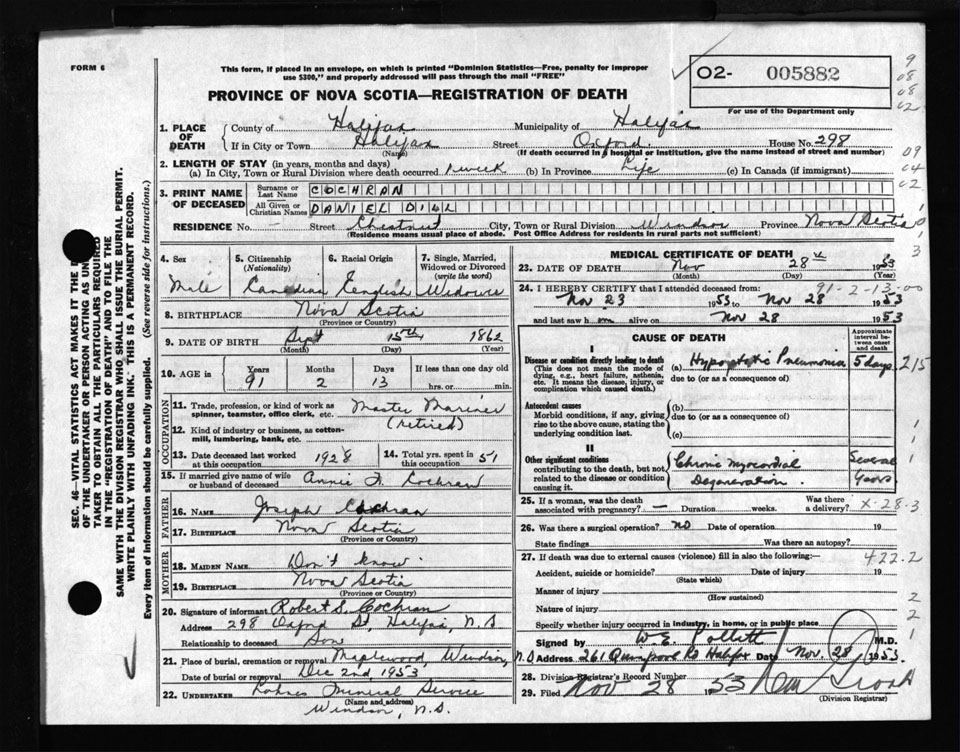 FORM 6
This form, if placed in an envelope, on which is printed "Dominion Statistics—Free, penalty for improper
use $300," and properly addressed will pass through the mail "FREE"
02- 005882
For use of the Department only
PROVINCE OF NOVA SCOTIA—REGISTRATION OF DEATH
1. PLACE OF DEATH County of Halifax Municipality of Halifax
If in City or Town Halifax Street Oxford House No. 298
(Name) (If death occurred in a hospital or institution, give the name instead of street and number)
2. LENGTH OF STAY (in years, months and days)
(a) In City, Town or Rural Division where death occurred 1 week (b) In Province Life (c) In Canada (if immigrant)
3. PRINT NAME OF DECEASED Surname or Last Name COCHRAN
All Given or Christian Names DANIEL DILL
RESIDENCE No. — Street Chestnut City, Town or Rural Division Windsor Province Nova Scotia
(Residence means usual place of abode. Post Office Address for residents in rural parts not sufficient)
4. Sex Male
5. Citizenship (Nationality) Canadian
6. Racial Origin English
7. Single, Married, Widowed or Divorced (write the word) Widower
8. BIRTHPLACE Nova Scotia
(Province or Country)
9. DATE OF BIRTH Sept 15th 1862
(Month) (Day) (Year)
10. AGE in Years 91 Months 2 Days 13 If less than one day
hrs. or min.
OCCUPATION
11. Trade, profession, or kind of work as spinner, teamster, office clerk, etc. Master Mariner
(retired)
12. Kind of industry or business, as cotton-mill, lumbering, bank, etc.
13. Date deceased last worked at this occupation 1928
14. Total yrs. spent in this occupation 51
15. If married give name of wife or husband of deceased Annie F. Cochran
FATHER
16. NAME Joseph Cochran
17. BIRTHPLACE Nova Scotia
(Province or Country)
MOTHER
18. MAIDEN NAME Don't know
19. BIRTHPLACE Nova Scotia
(Province or Country)
20. Signature of informant Robert S. Cochran
Address 298 Oxford St, Halifax, N.S
Relationship to deceased Son
21. Place of burial, cremation or removal Maplewood, Windsor, N.S
Date of burial or removal Dec 2nd 1953
22. UNDERTAKER Lohnes Funeral Service
(Name and address)
Windsor, N.S.
MEDICAL CERTIFICATE OF DEATH
23. DATE OF DEATH Nov 28th 1953
(Month) (Day) (Year)
91-2-13-00
24. I HEREBY CERTIFY that I attended deceased from:
Nov 23 1953 to Nov 28 1953
and last saw him alive on Nov 28 1953
CAUSE OF DEATH
Approximate interval between onset and death
I
Disease or condition directly leading to death
(This does not mean the mode of dying, e.g., heart failure, asthenia, etc. It means the disease, injury, or complication which caused death.)
(a) Hypostatic Pneumonia 5 days
due to (or as a consequence of)
Antecedent causes
Morbid conditions, if any, giving rise to the above cause, stating the underlying condition last.
(b)
due to (or as a consequence of)
(c)
II
Other significant conditions
contributing to the death, but not related to the disease or condition causing it.
Chronic Myocardial Degeneration. Several Years
25. If a woman, was the death associated with pregnancy? — Duration weeks. Was there a delivery?
X-28-3
26. Was there a surgical operation? no Date of operation 19
State findings Was there an autopsy?
27. If death was due to external causes (violence) fill in also the following:—
422.2
Accident, suicide or homicide? Date of injury 19
(State which)
Manner of injury
(How sustained)
Nature of injury
Specify whether injury occurred in industry, in home, or in public place
Signed by W.E. Pollett M.D.
Address 261 Quinpool Rd Halifax Date Nov. 28 1953.
28. Division Registrar's Record Number
29. Filed Nov 28 1953
(Division Registrar)
SEC. 46—VITAL STATISTICS ACT MAKES IT THE
OF THE UNDERTAKER OR PERSON ACTING AS UN
TAKER TO OBTAIN ALL THE PARTICULARS REQUIRED
IN THE "REGISTRATION OF DEATH" AND TO FILE THE
SAME WITH THE DIVISION REGISTRAR WHO SHALL ISSUE THE BURIAL PERMIT.
WRITE PLAINLY WITH UNFADING INK. THIS IS A PERMANENT RECORD.
Every item of information should be carefully supplied. (See reverse side for instructions.)